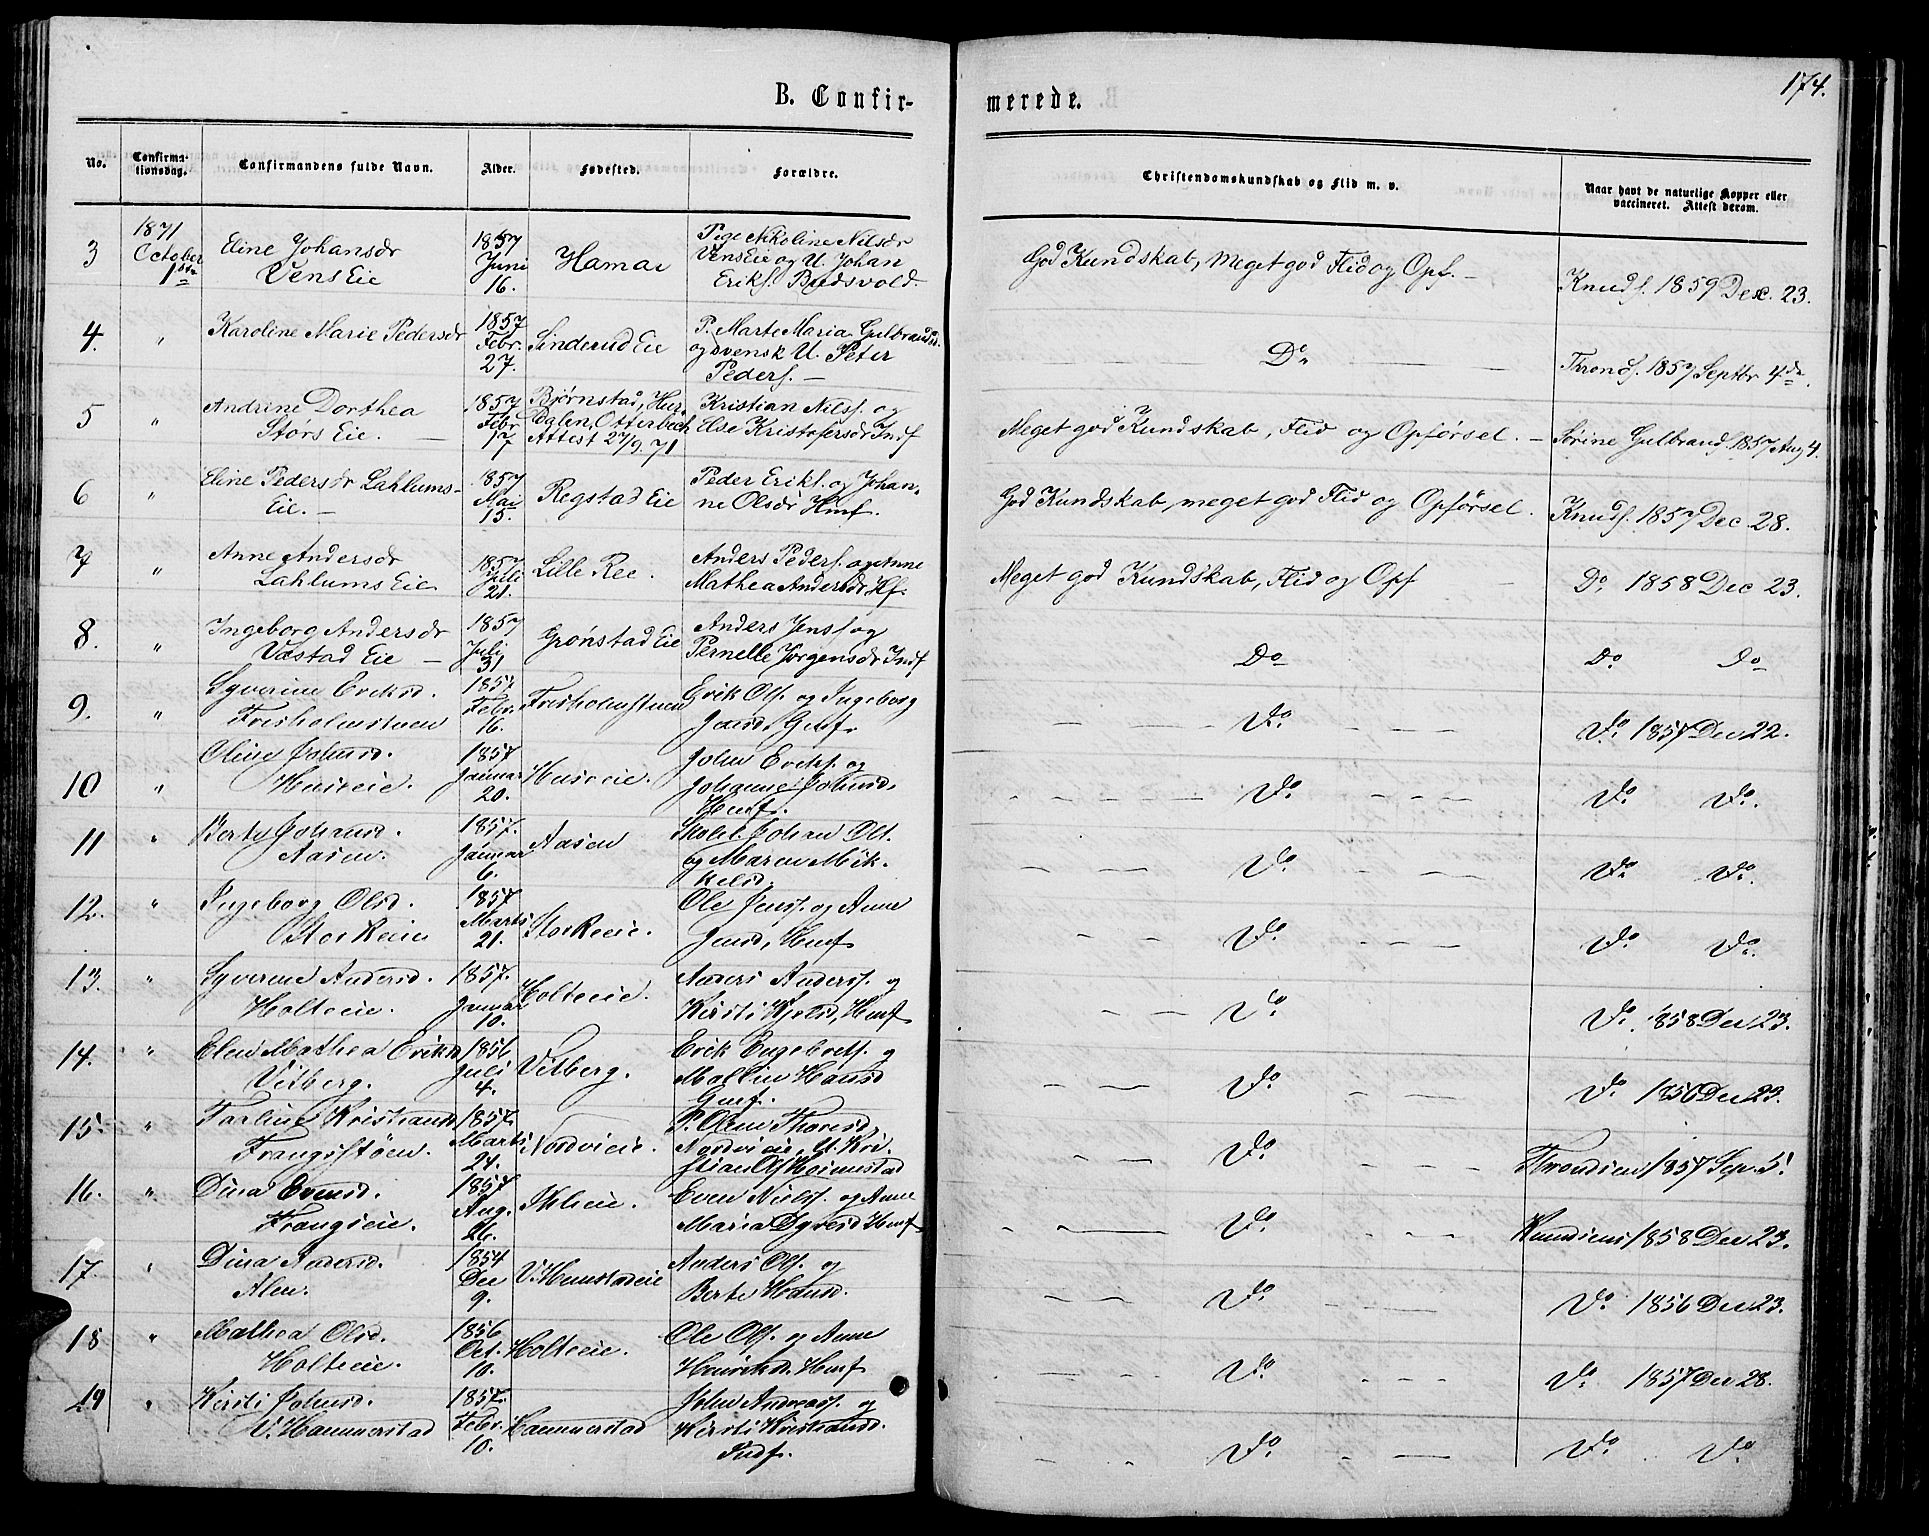 174.
B. Confirmerede.
No. Confirmationsdag. Confirmandens fulde Navn. Alder. Fødested. Forældre. Christendomskundskab og Flid m. v. Naar havt de naturlige Kopper eller vaccineret. Attest derom.
3 1871 October 1ste Eline Johansdr Vens Eie 1857 Juni 16. Hamar Pige Nikoline Nilsdr Vens Eie og U. Johan Eriks. God Kundskab, meget god Flid og Opf. – Knuds. 1859 Dec. 23.
4. " Karoline Marie Pedersdr 1857 Febr. 27. Sinderud Eie P. Marte Maria Gulbrandsd. og svensk U. Peter Peders. – Do Thronds. 1857 Septbr 4de.
5 " Andrine Dorthea Störs Eie. – 1857 Febr 17 Bjørnstad, Hurdalen, Otterbech Attest 27/9 71 Kristian Nilss. og Else Kristofersdr Indf Meget god Kundskab, Flid og Opførsel. – Sørine Gulbrands. 1857 Aug 4.
6 " Eline Pedersdr Lahlums Eie. – 1857 Mai 15. Regstad Eie Peder Eriks. og Johanne Olsdr Hmf. God Kundskab, meget god Flid og Opførsel. Knuds. 1857 Dec 28.
7 " Anne Andersdr Lahlums Eie 1857 Juli 21. Lille Ree. Anders Peders. og Anne Mathea Andersdr Hf. Meget god Kundskab, Flid og Opf Do 1858 Dec 23.
8. " Ingeborg Andersdr Væstad Eie – 1857 Juli 31 Grønstad Eie Anders Jens. og Pernelle Jørgensdr Indf Do Do Do
9. " Syverine Eriksd. Frisholmstuen 1857 Febr. 16. Frisholmstuen Erik Ols. og Ingeborg Jensd. Do. Do. 1857 Dec 22.
10 " Oline Johnsd. Huseeie. 1857 Januar 20. Huseeie. John Eriks. og Johanne Johnsd. Huusf. Do. Do Do.
11 " Berte Johansd. Aasen. 1857. Januar 6. Aasen Johan Ols. og Maren Mikkelsd. Do. Do Do.
12. " Ingeborg Olsd. Storkeeie 1857. Marts 21. Storkeeie. Ole Jenss. og Anne Jensd, Huusf. Do. Do Do.
13. " Syverine Andersd. Holteeie. 1857. Januar 10. Holteeie. Anders Anderss. og Kirsti Kjelsd, Huusf. Do Do. 1858 Dec 23.
14. " Elen Mathea Eriksd Vilberg. 1856 Juli 4. Vilberg. Erik Engebrets. og Mallin Hansd Do. Do. 1856 Dec 23.
15. " Karline Kristiansd Frangsstøen. 1857. Marts 24. Nordvieie. P. Oline Thoresd, Nordvieie, U. Kristian Ols Heimstad Do. Throndsens 1857 Sep. 5.
16. " Dina Evensd. Frangseie. 1857 Aug. 26. Even Nielss. og Anne Maria Syversd Huusf Do. Knudsens 1858 Dec 23.
17 " Dina Andersd. Alm. 1854 Dec 9. V. Hemstadeie Anders Ols. og Berte Hansd. Do. Do. 1856 Dec 23.
18 " Mathea Olsd. Holteeie. 1856 Oct. 10. Holteeie. Ole Ols. og Anne Henriksd. Huusf. Do. Do. 1857 Dec 28.
19 " Kirsti Johnsd. V. Hammerstad 1857. Febr. 10. Hammerstad John Andreass. og Kirsti Kristiansd. Indf. Do. Do Do